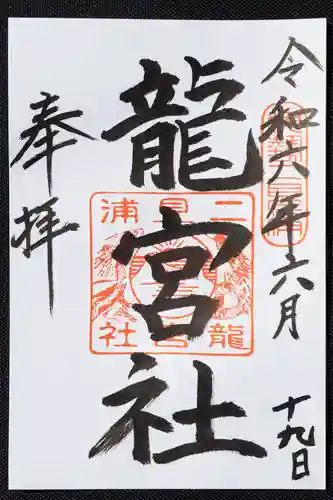 令和六年六月
十九日
龍宮社
奉拝
二
龍
浦
社